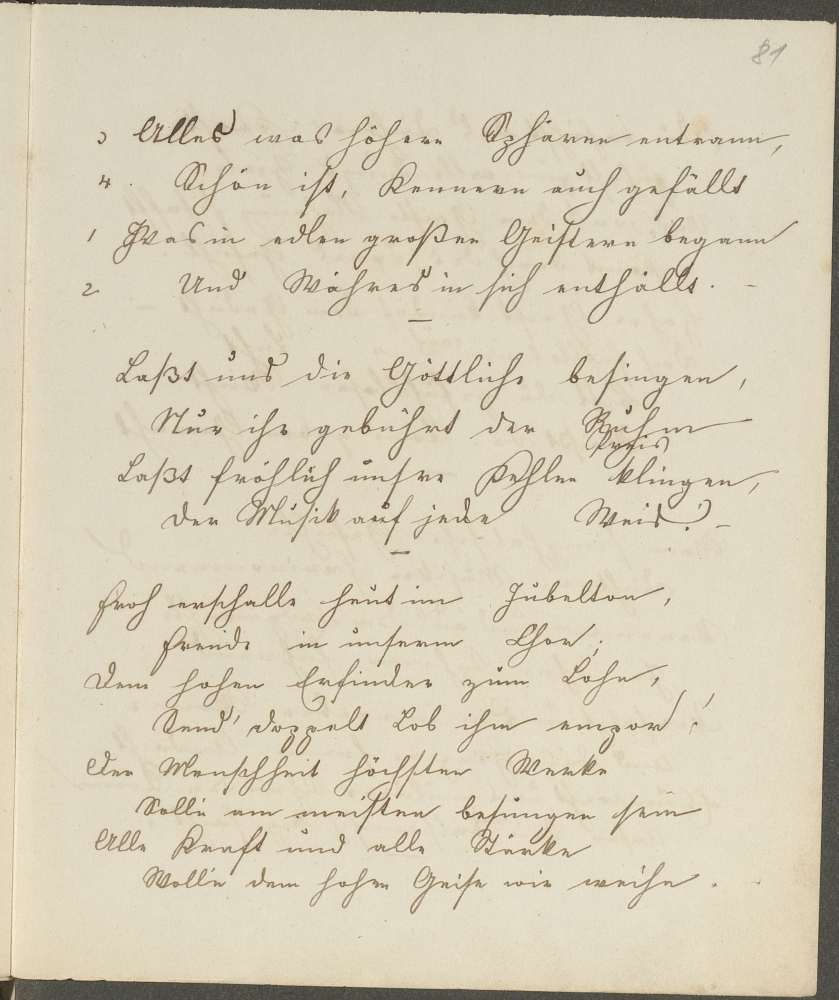 81
3 Alles was höhern Sphären entrann,
4. Schön ist, Kennern auch gefällt
1 Was in edlen großen Geistern begann
2 Und Wahres in sich enthällt. -
Laßt uns die Göttliche besingen,
Nur ihr gebührt der Ruhm
Preis
Laßt fröhlich unsre Kehlen klingen,
Der Musik auf jede Weis! -
Froh erschalle heut im Jubelton,
Freude in unserm Chor;
Dem hohen Erfinder zum Lohn,
Send' doppelt Lob ihm empor!
Der Menschheit höchsten Werke
Solle am meisten besungen sein
Alle Kraft und alle Stärke
Woll'n dem hohen Geise wir weihn.